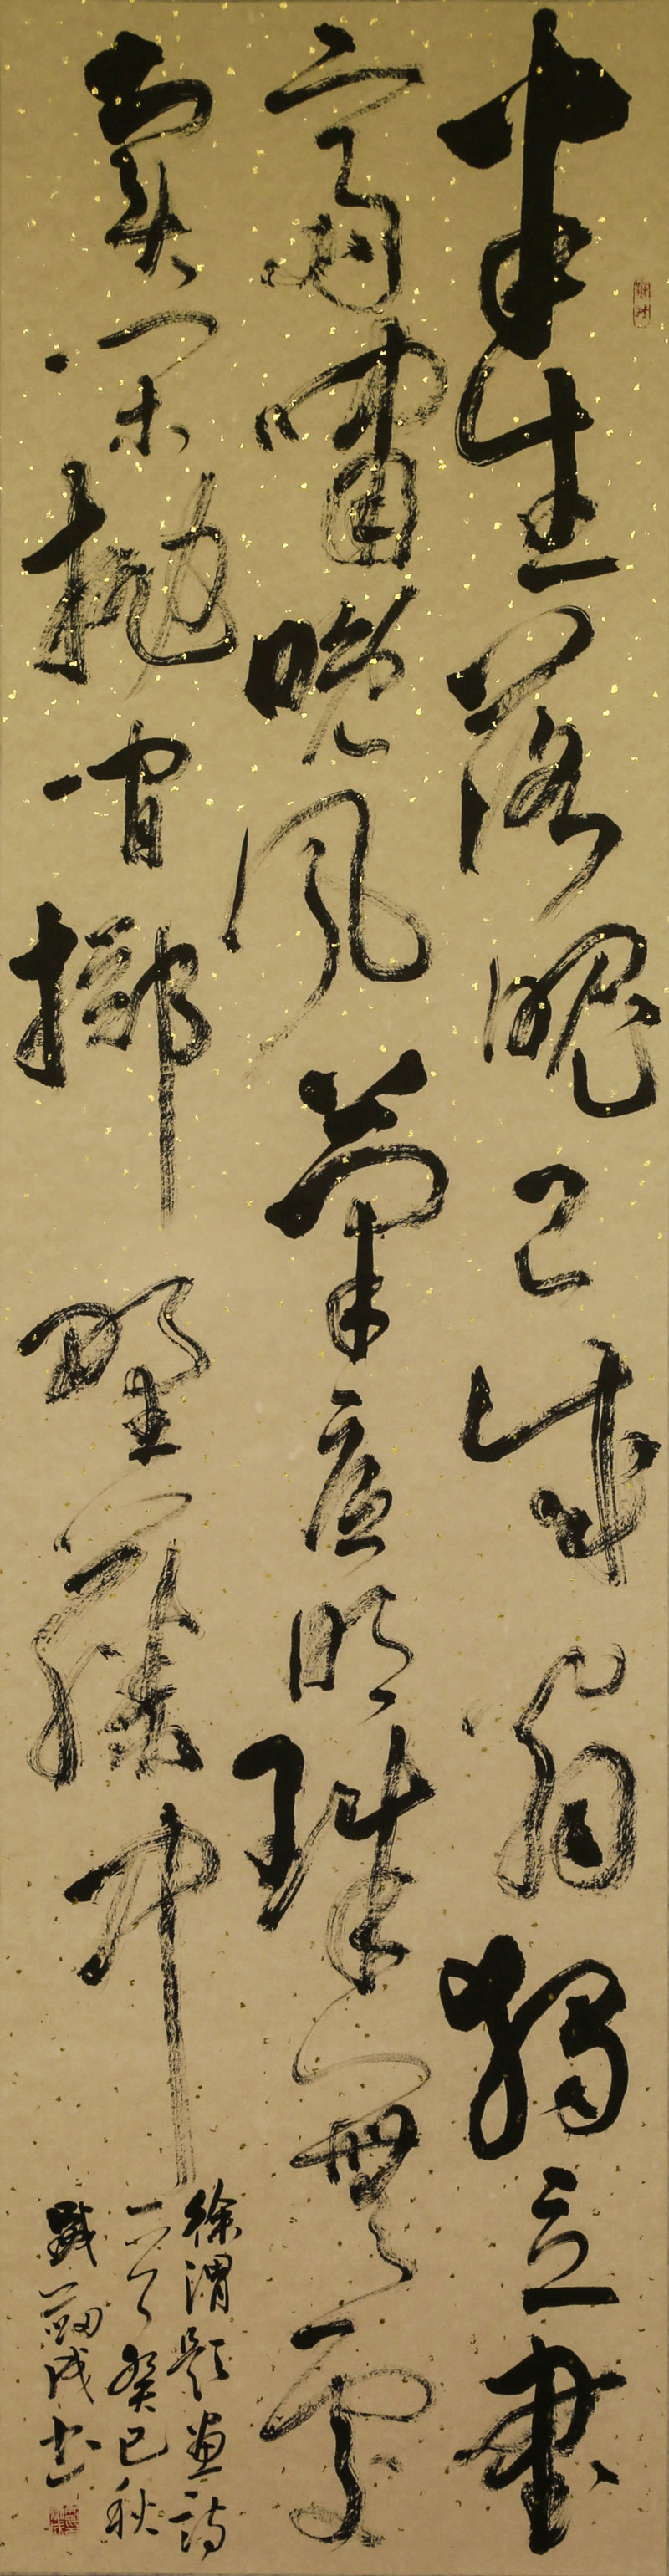 半生落魄已成翁獨立書
齋嘯晚風筆底明珠無處
賣閑抛閑擲野藤中
徐渭題畫詩
一首癸巳秋
成書